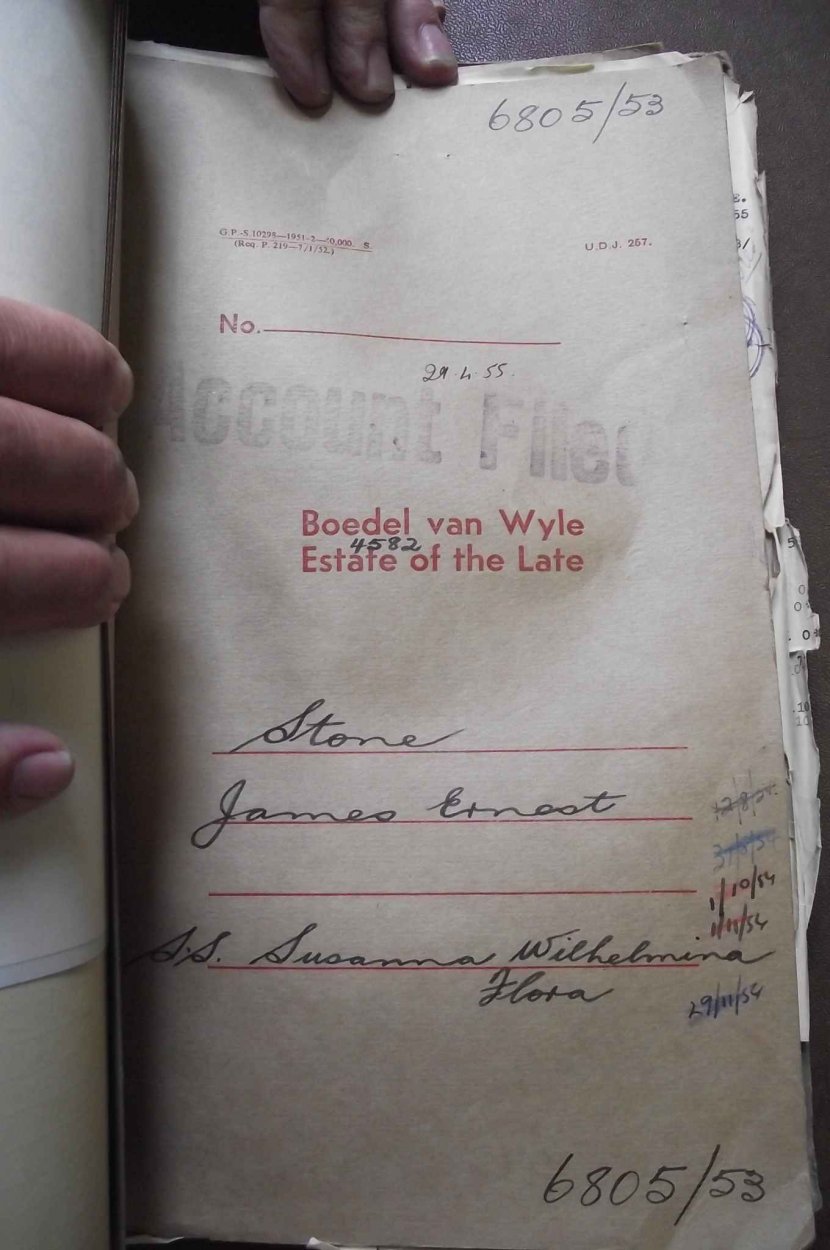 6805/53
G.P.-S.10298—1951-2—0,000. S.
(Req. P. 219—7/1/52.)
U.D.J. 257.
No.
29.4.55.
Account Filed
Boedel van Wyle
4582
Estate of the Late
Stone
James Ernest
31/8/54
1/10/54
1/11/54
S.S. Susanna Wilhelmina
Flora
29/11/54
6805/53